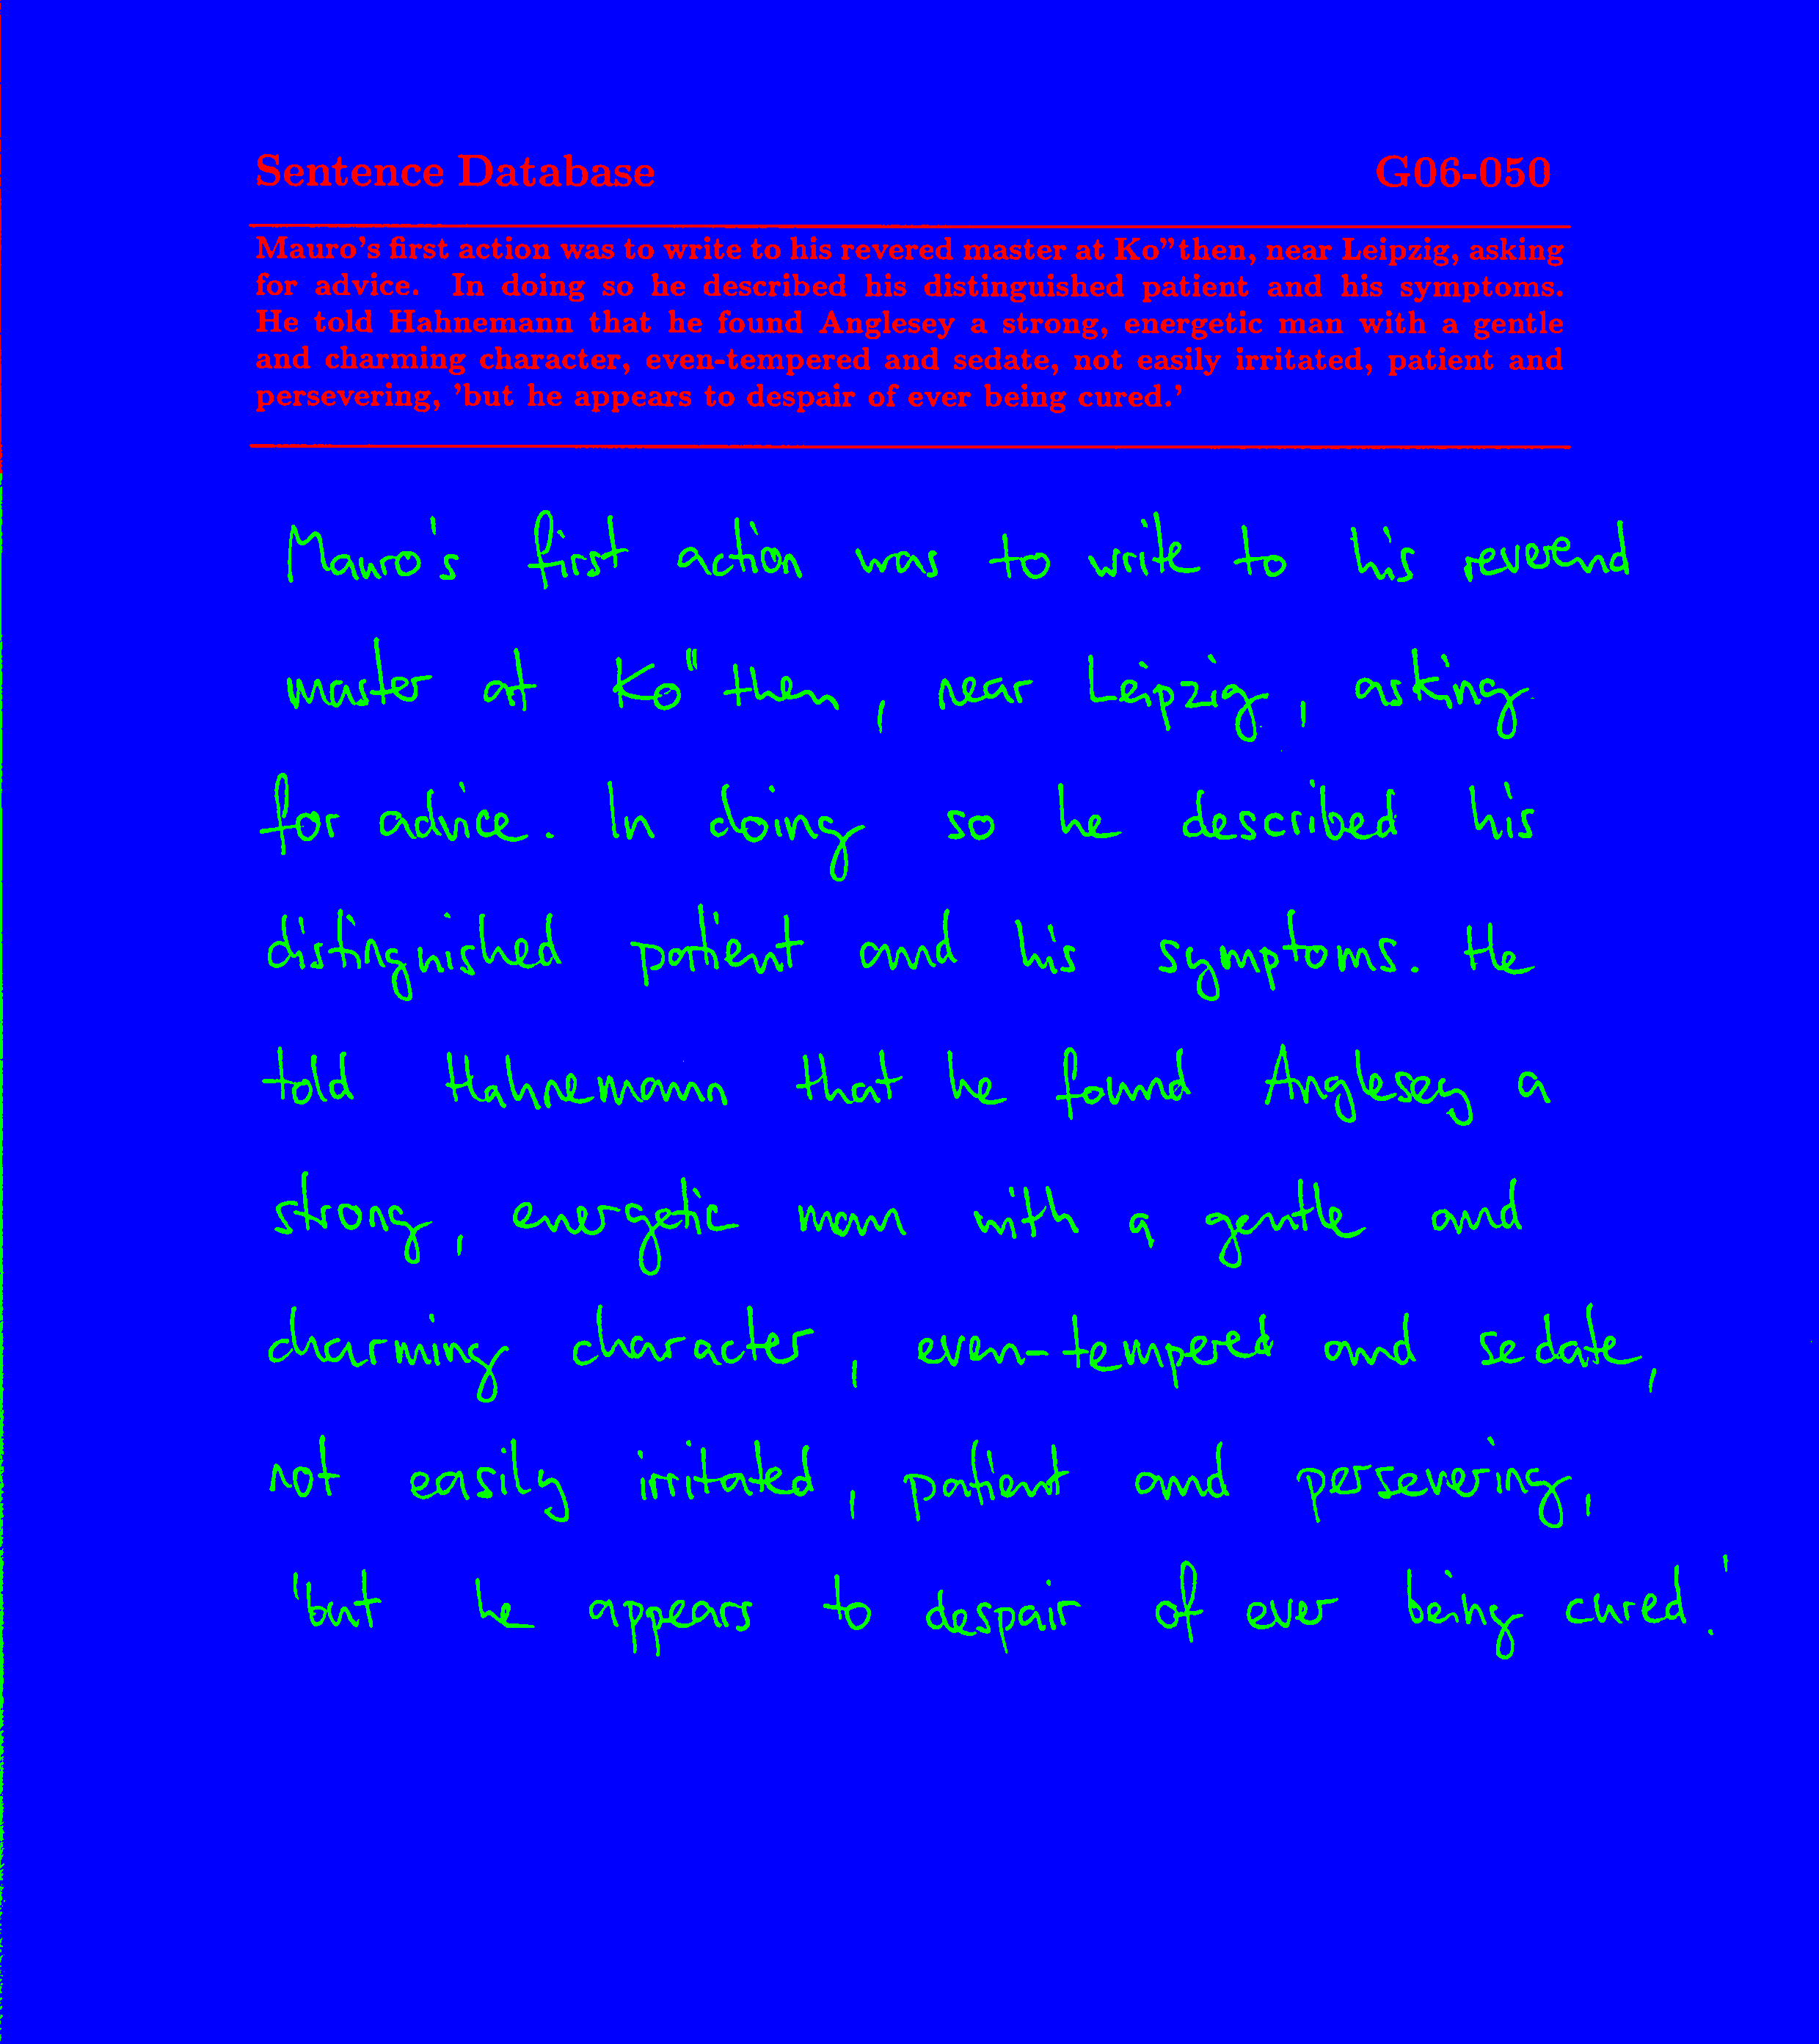 Sentence Database G06-050
Mauro's first action was to write to his revered master at Ko"then, near Leipzig, asking
for advice. In doing so he described his distinguished patient and his symptoms.
He told Hahnemann that he found Anglesey a strong, energetic man with a gentle
and charming character, even-tempered and sedate, not easily irritated, patient and
persevering, 'but he appears to despair of ever being cured.'
Mauro's first action was to write to his reverend
master at Ko"then, near Leipzig, asking
for advice. In doing so he described his
distinguished patient and his symptoms. He
told Hahnemann that he found Anglesey a
strong, energetic man with a gentle and
charming character, even-tempered and sedate,
not easily irritated, patient and persevering,
'but he appears to despair of ever being cured.'